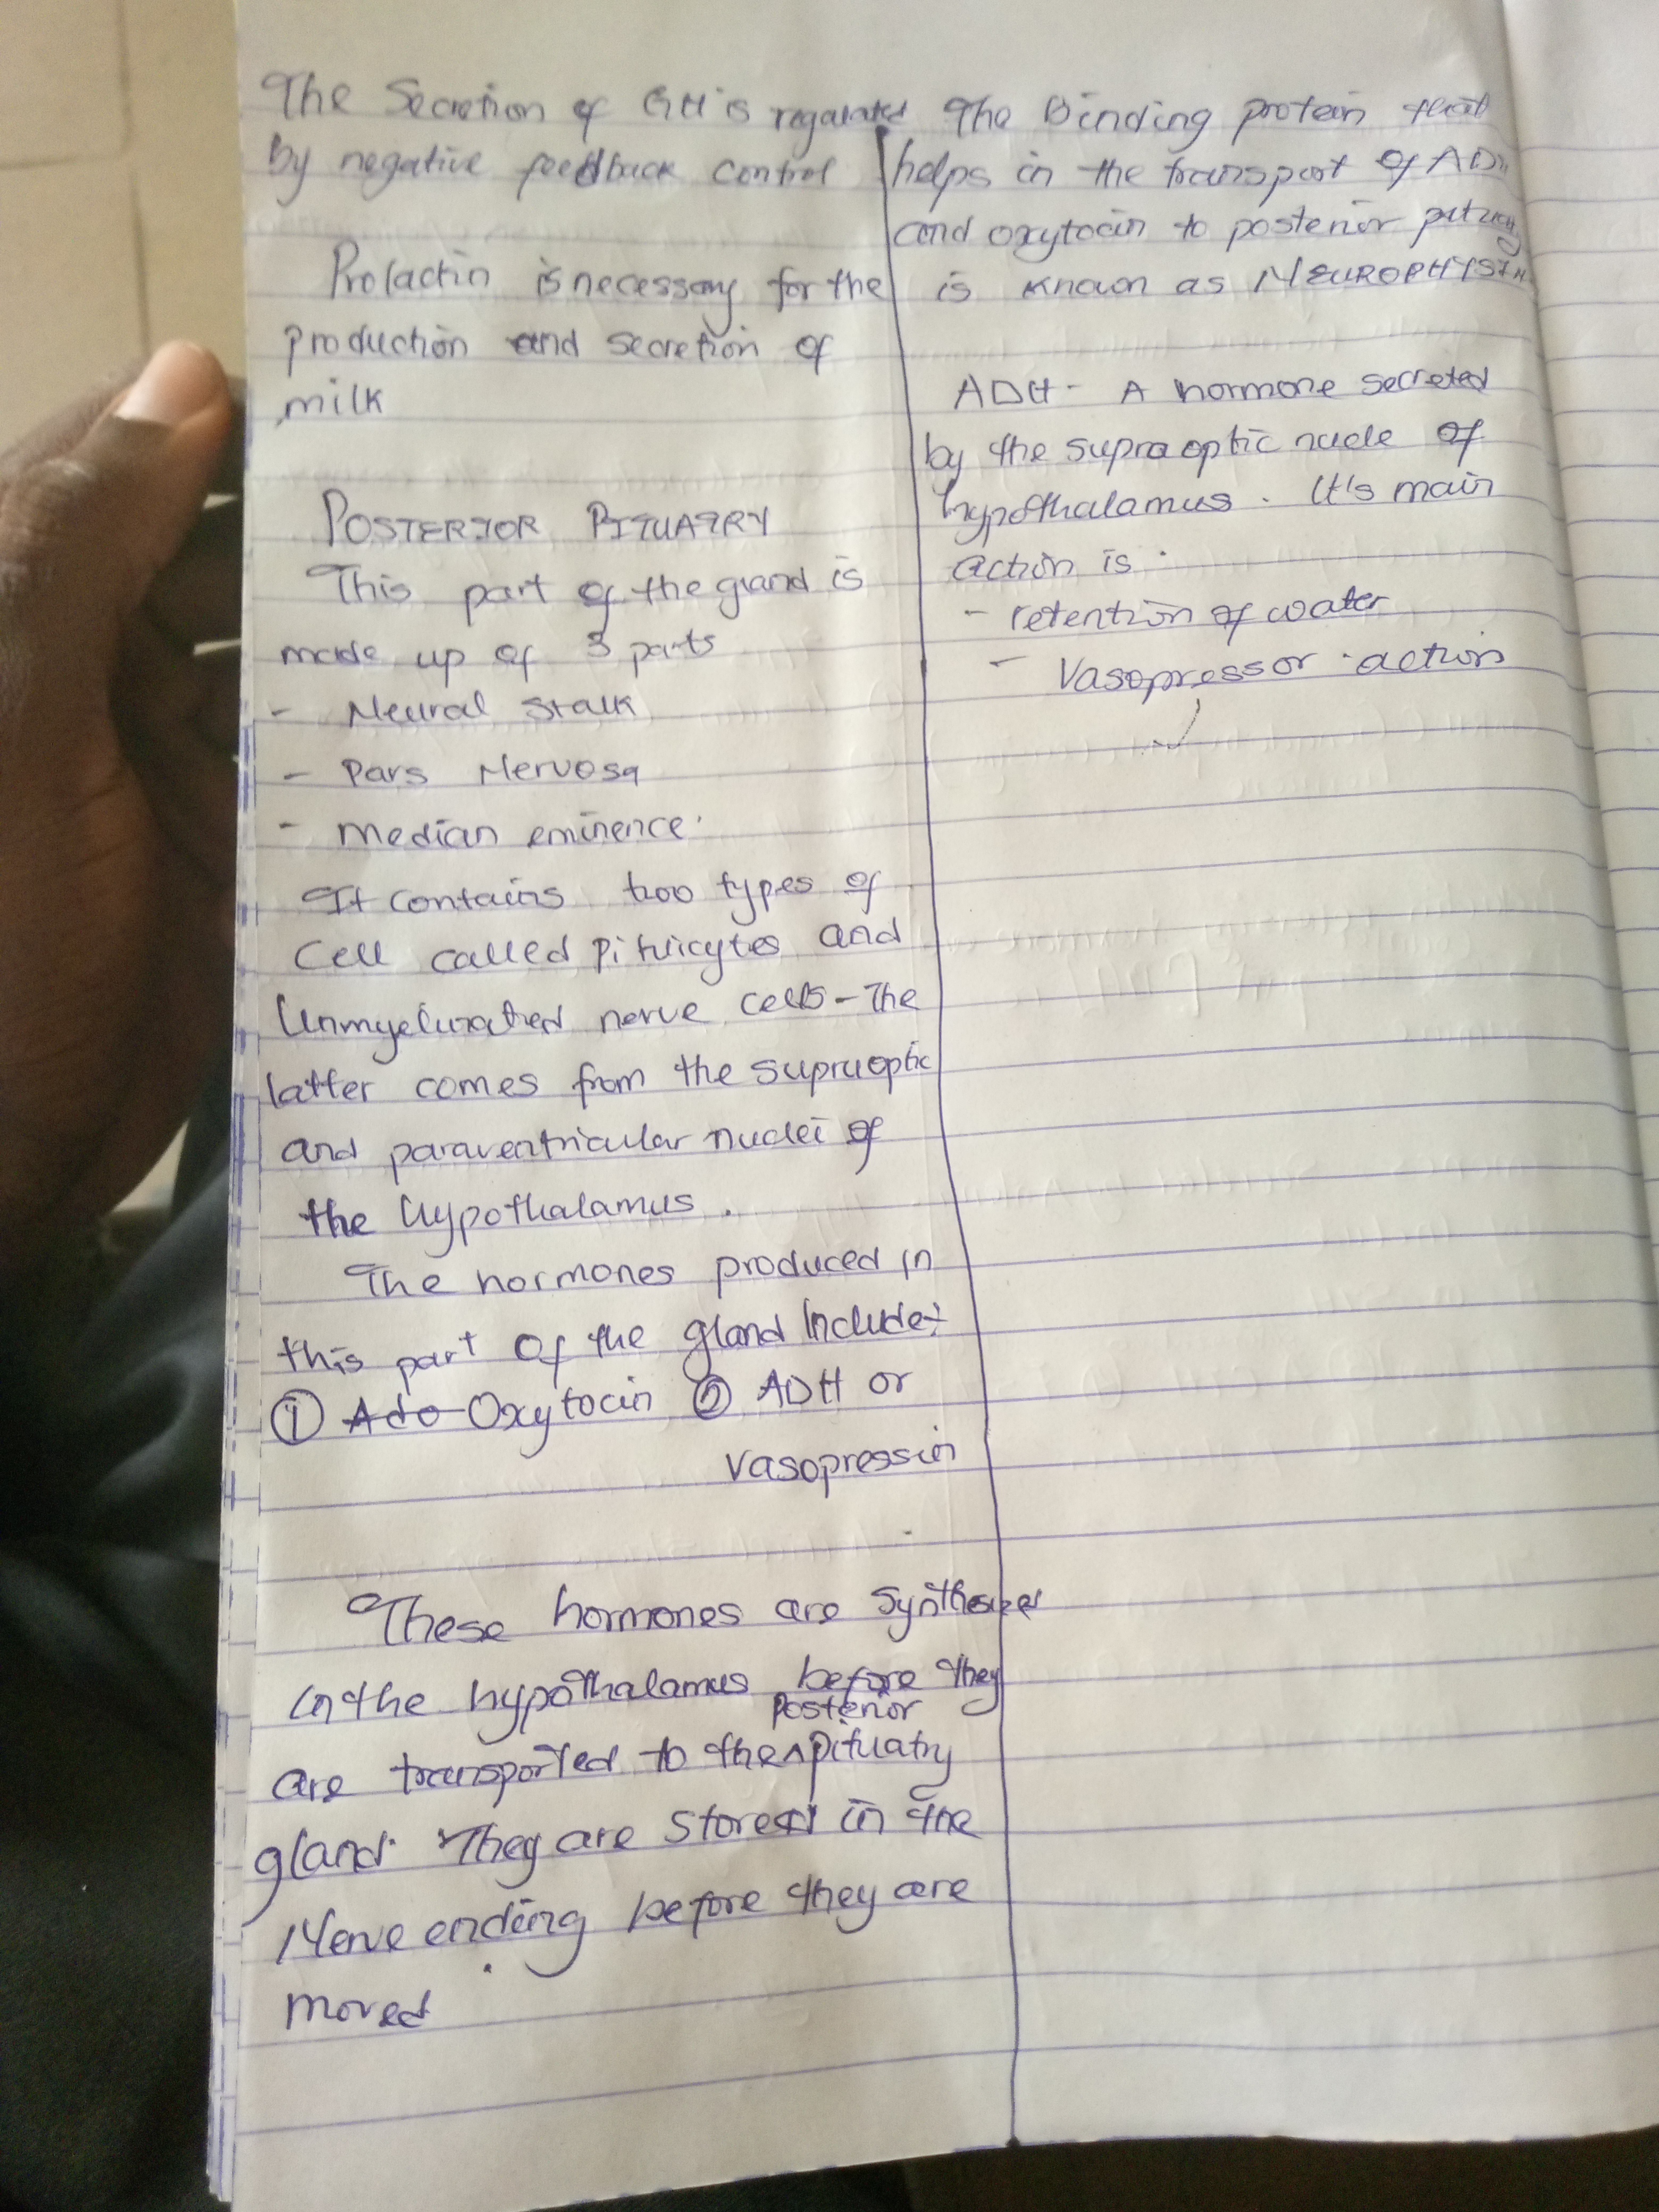 The Secretion of GH is regulated
by negative feedback control
Prolactin is necessary for the
production and secretion of
milk
POSTERIOR PITUATRY
This part of the gland is
made up of 3 parts
- Neural stalk
- Pars Nervosa
- Median eminence
It contains two types of
Cell called Pituicytes and
Unmyelinated nerve cells - The
latter comes from the supraoptic
and paraventricular nuclei of
the hypothalamus.
The hormones produced in
this part of the gland include:
① Ado Oxytocin ② ADH or
Vasopressin
These hormones are Synthesized
in the hypothalamus before they
Posterior
are transported to the ^ pituatry
gland. They are stored in the
Nerve ending before they are
moved
The Binding protein that
helps in the transport of ADH
and oxytocin to posterior
is known as NEUROPHYSIN
ADH - A hormone secreted
by the supraoptic nucle of
hypothalamus. It's main
action is:
- retention of water
- Vasopressor action